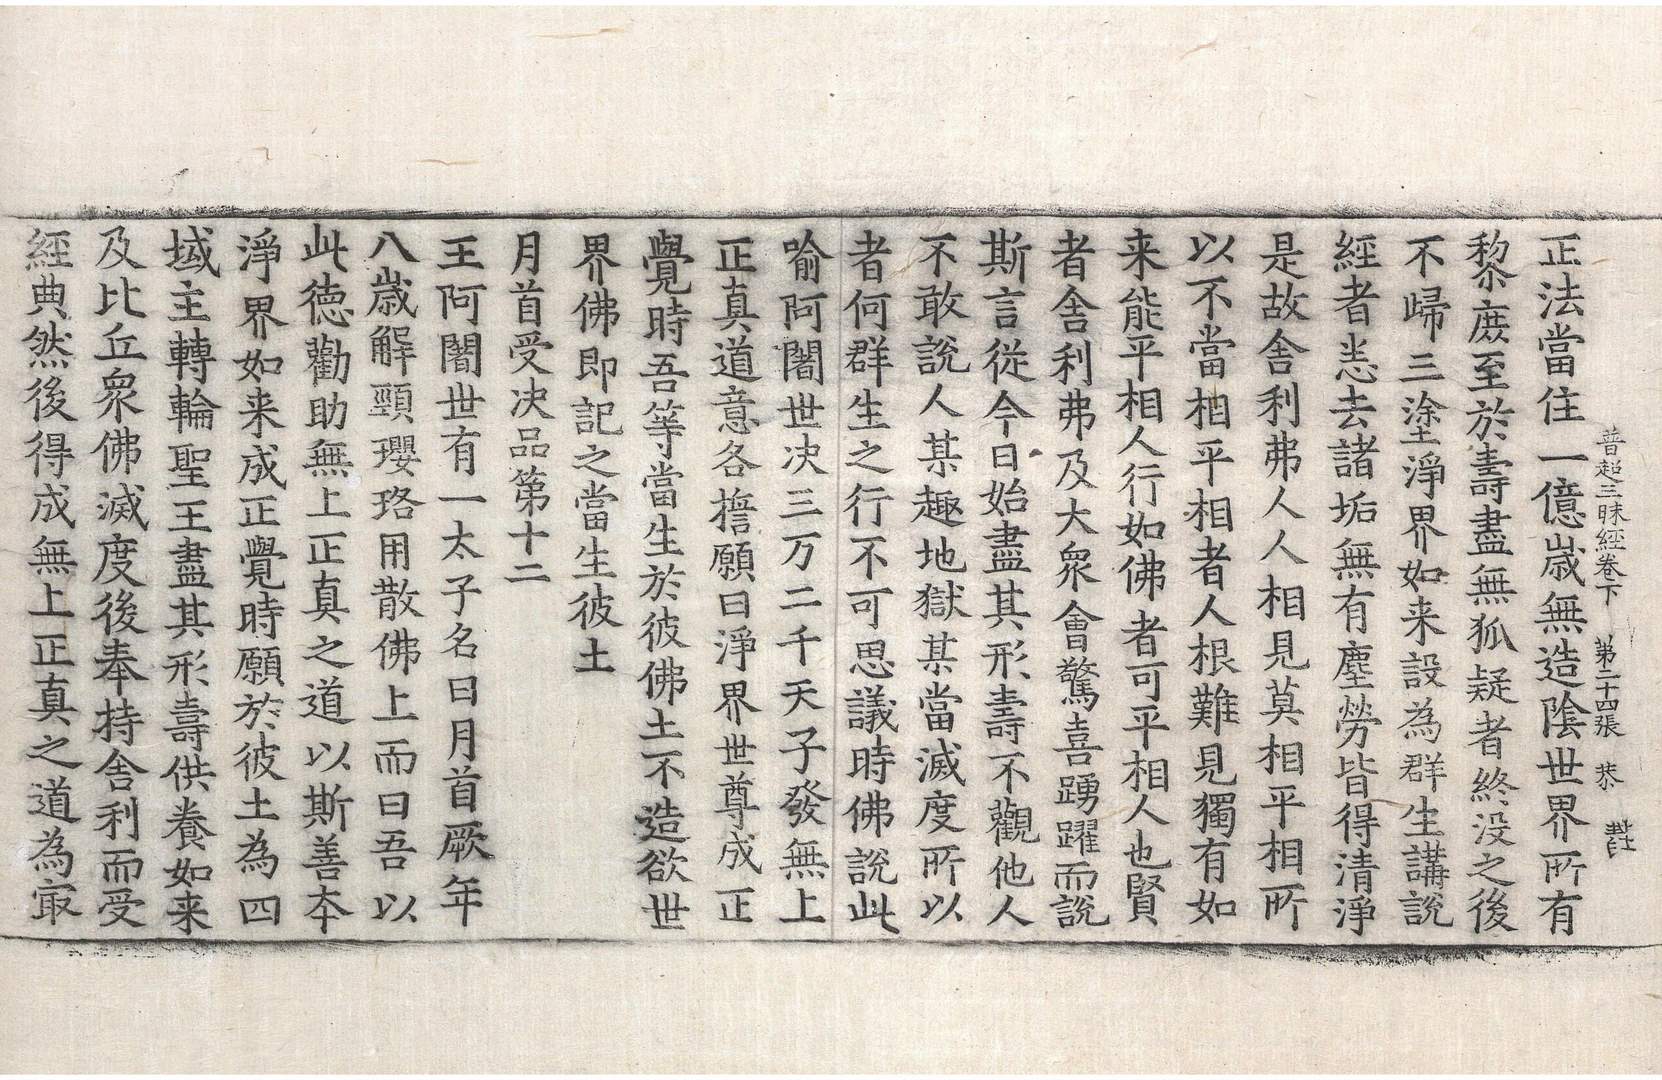 普超三昧經卷下　第二十四張　恭
正法當住一億歲無造陰世界所有
黎庶至於壽盡無狐疑者終沒之後
不歸三塗淨界如来設為群生講說
經者恙去諸垢無有塵勞皆得清淨
是故舍利弗人人相見莫相平相所
以不當相平相者人根難見獨有如
来能平相人行如佛者可平相人也賢
者舍利弗及大衆會驚喜踊躍而說
斯言從今日始盡其形壽不觀他人
不敢說人某趣地獄某當滅度所以
者何群生之行不可思議時佛說此
喻阿闍世决三万二千天子發無上
正真道意各擔願曰淨界世尊成正
覺時吾等當生於彼佛土不造欲世
界佛即記之當生彼土
月首受决品第十二
王阿闍世有一太子名曰月首厥年
八歲解頸瓔珞用散佛上而曰吾以
此德勸助無上正真之道以斯善本
淨界如来成正覺時願於彼土為四
域主轉輪聖王盡其形壽供養如来
及比丘衆佛滅度後奉持舍利而受
經典然後得成無上正真之道為㝡